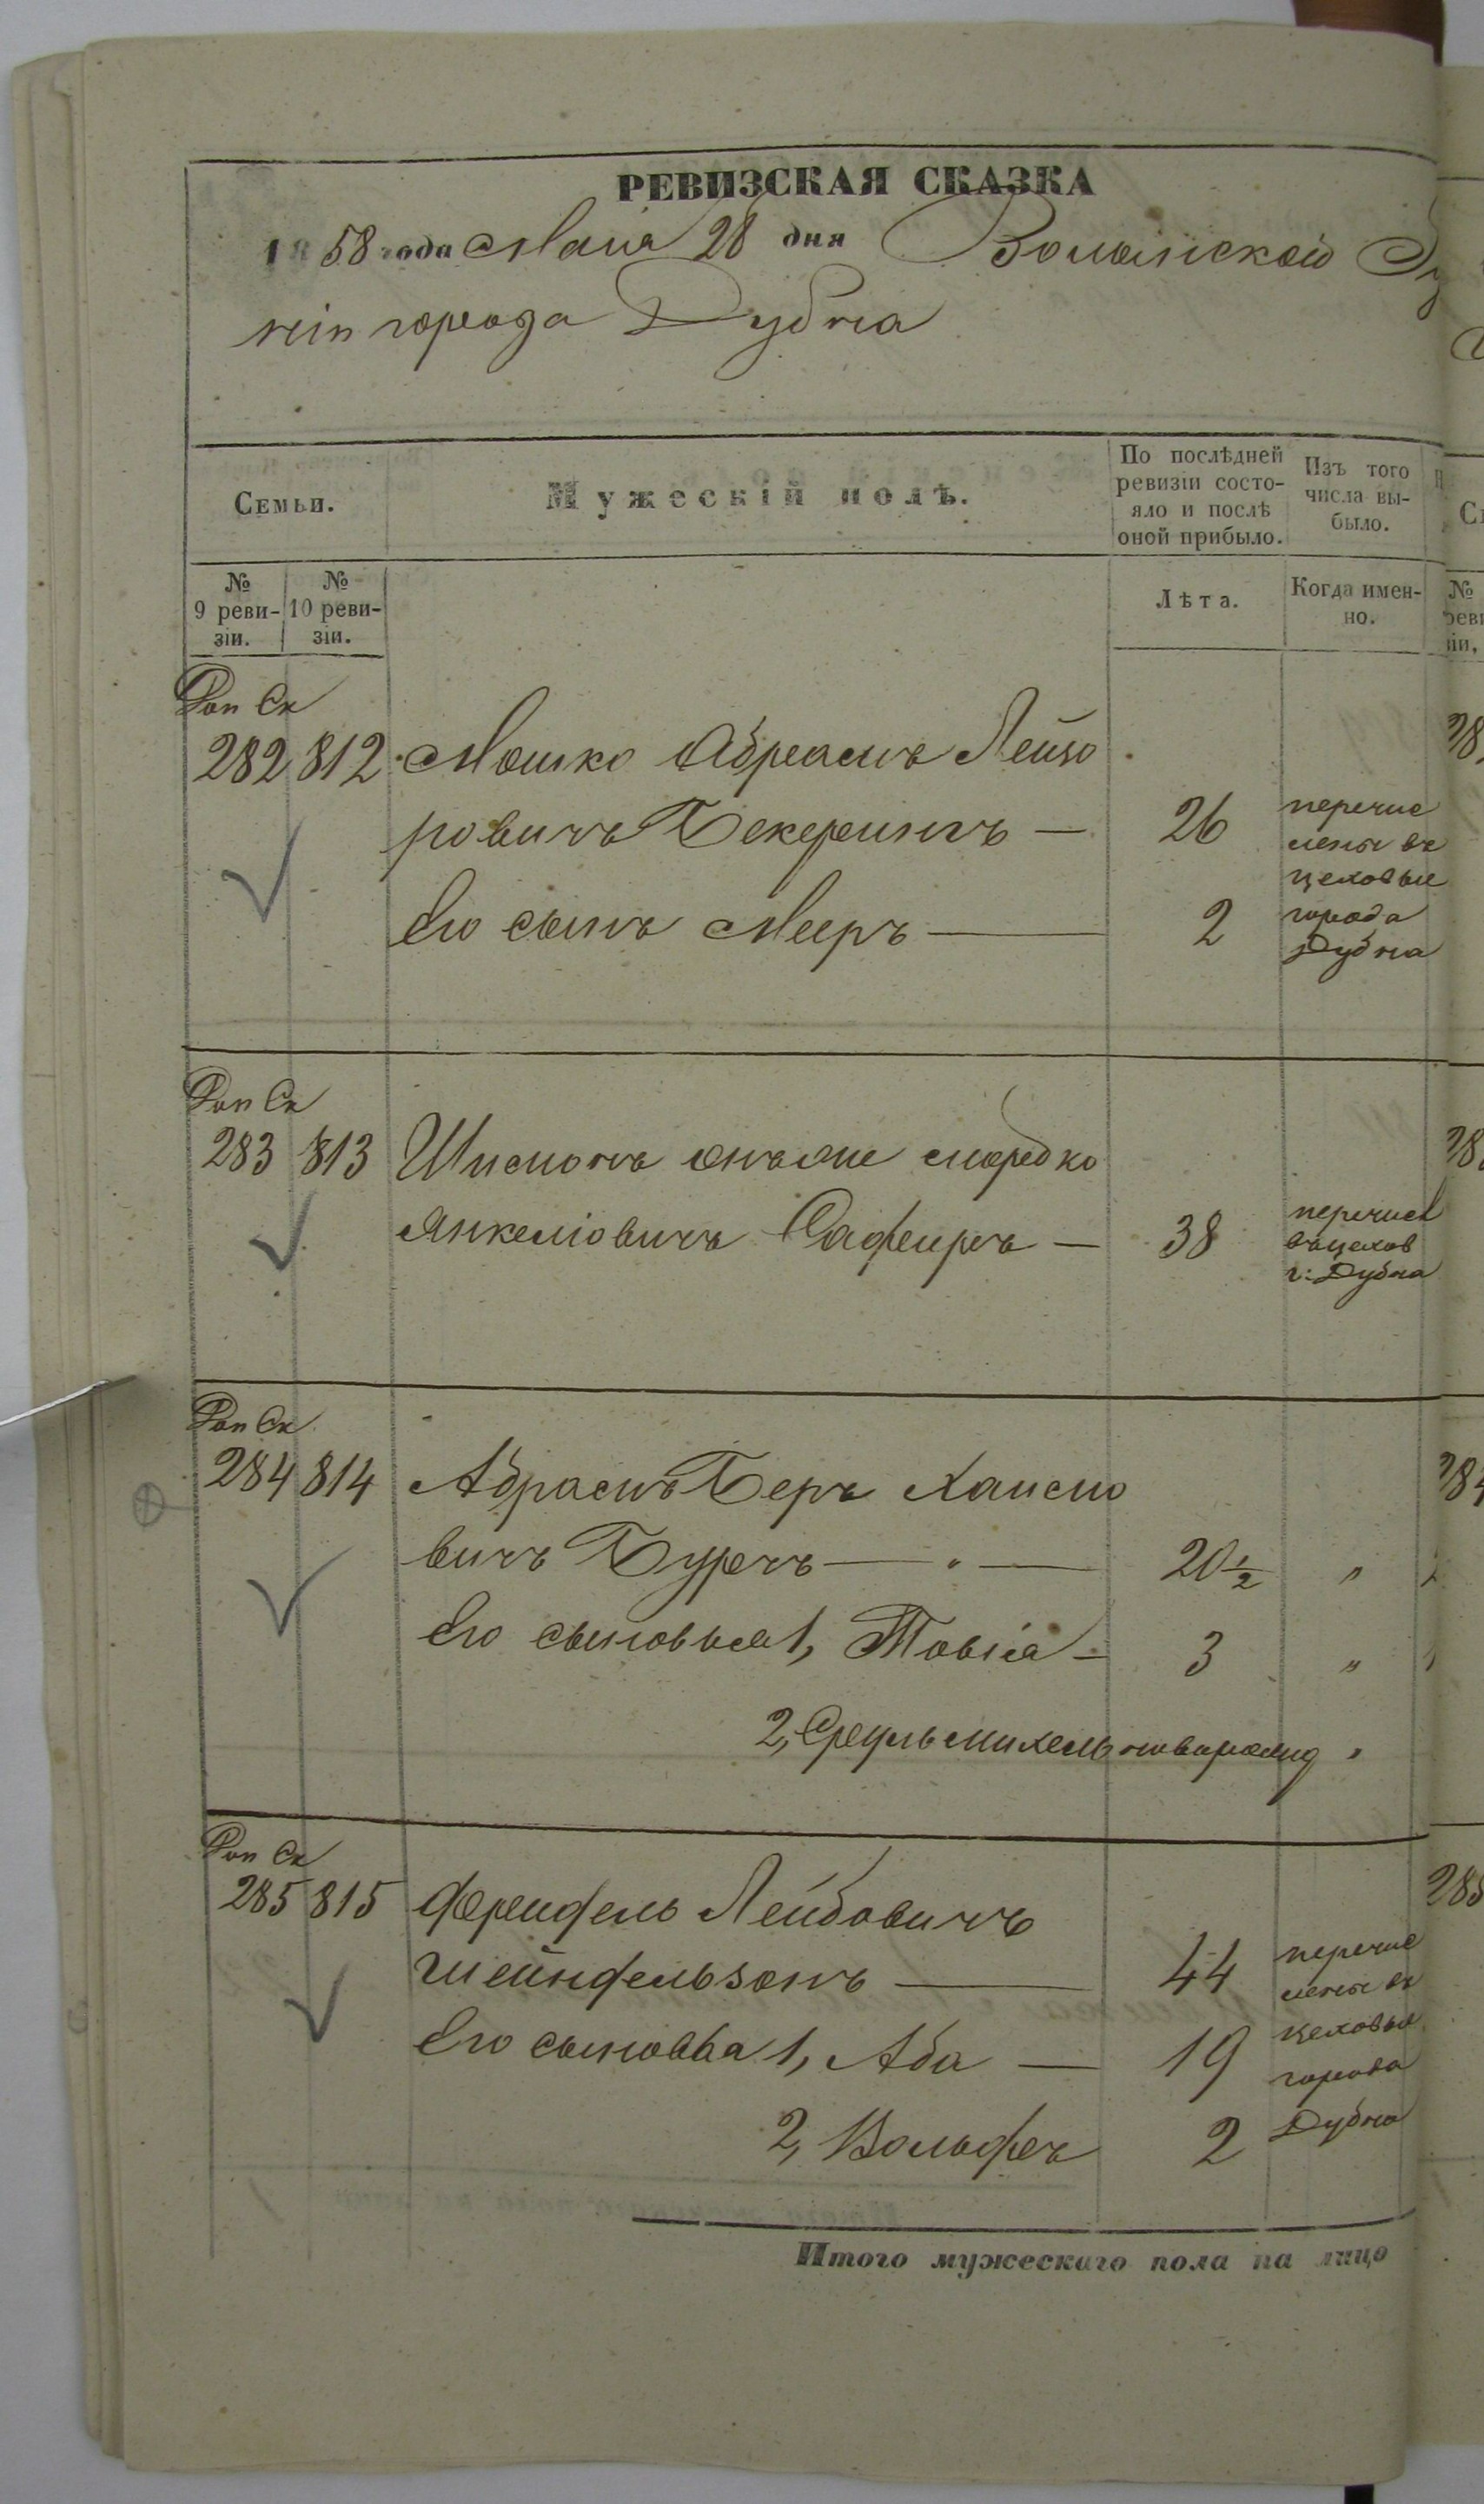 РЕВИЗСКАЯ СКАЗКА
1858 года Маія 28 дня Волынской Гу
ніи города Дубна
Семьи.
Мужескій полъ.
По послѣдней ревизіи состо-
яло и послѣ оной прибыло.
Изъ того числа вы-
было.
№ 9 реви-
зіи.
№ 10 реви-
зіи.
Лѣта.
Когда имен-
но.
Доп Ск
282 812 Мошко Абрамъ Лейзо
ровичъ Бекерингъ — 26 перечис
лены въ
цеховые
Его сынъ Мееръ — 2 города
Дубна
Доп Ск
283 813 Шисмонъ онъ же Мордко
Янкеліовичъ Сафиръ — 38 перечисл
въ цехов
г: Дубна
Доп Ск
284 814 Абрамъ Беръ Хаимо
вичъ Буречъ — 20 1/2 "
Его сыновья 1, Товія — 3 "
2, Сруль Михель новорожд "
Доп Ск
285 815 Фреифель Лейбовичъ
Шейнфельзонъ — 44 перечис
лены въ
цеховые
Его сыновья 1, Аба — 19 города
2, Вольфъ 2 Дубна
Итого мужескаго пола на лицо